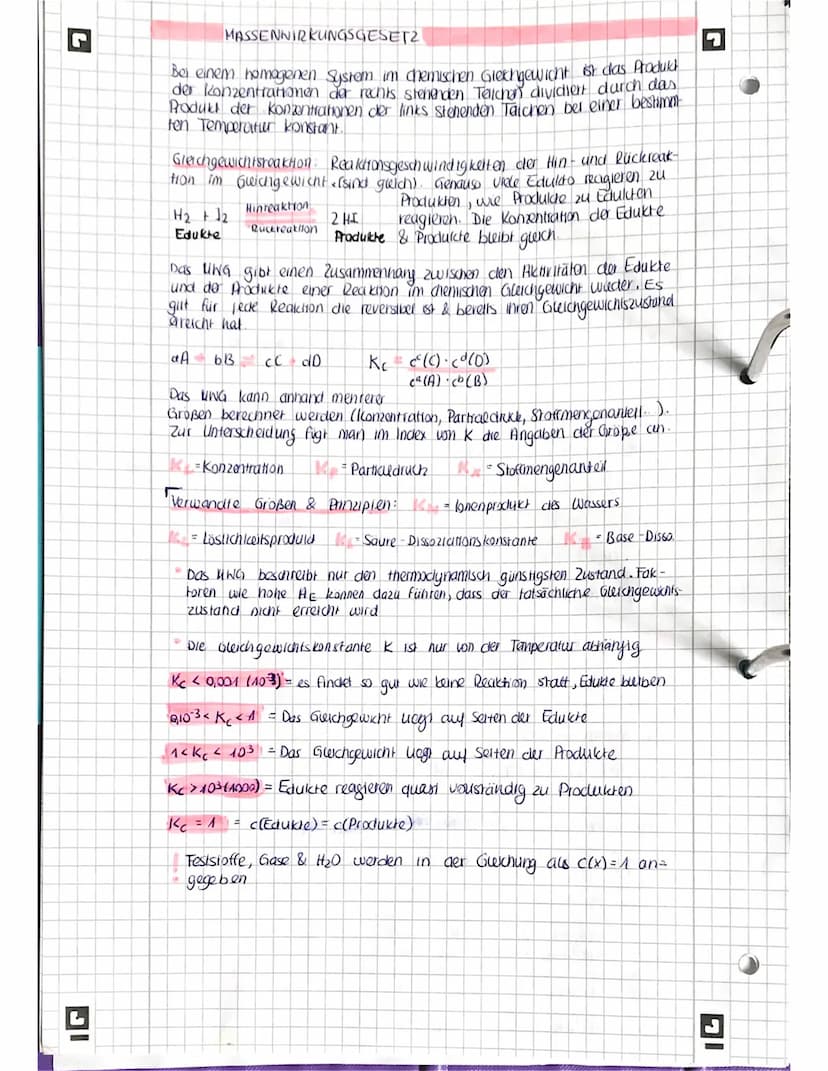 MASSENWIRKUNGSGESETZ
Bei einem homogenen System im chemischen Gleichgewicht ist das Produkt
der Konzentrationen der rechts stehenden Teilchen dividiert durch das
Produkt der Konzentrationen der links stehenden Teilchen bei einer bestimm-
ten Temperatur konstant.
Gleichgewichtsreaktion: Reaktionsgeschwindigkeiten der Hin- und Rückreak-
tion im Gleichgewicht (sind gleich). Genauso viele Edukte reagieren zu
Produkten, wie Produkte zu Edukten
H₂ + I₂ Hinreaktion Rückreaktion 2 HI reagieren. Die Konzentration der Edukte
Edukte Produkte & Produkte bleibt gleich
Das MWG gibt einen Zusammenhang zwischen den Aktivitäten der Edukte
und der Produkte einer Reaktion im chemischen Gleichgewicht wieder. Es
gilt für jede Reaktion die reversibel ist & bereits ihren Gleichgewichtszustand
erreicht hat.
aA + bB ⇌ cC + dD Kc = cᶜ(C) · cᵈ(D)
cᵃ(A) · cᵇ(B)
Das MWG kann anhand mehrerer
Größen berechnet werden (Konzentration, Partialdruck, Stoffmengenanteil...).
Zur Unterscheidung fügt man im Index von K die Angaben der Größe an.
Kc = Konzentration Kp = Partialdruck Kx = Stoffmengenanteil
Verwandte Größen & Prinzipien: Kw = Ionenprodukt des Wassers
KL = Löslichkeitsprodukt Ks = Säure-Dissoziationskonstante KB = Base-Disso.
• Das MWG beschreibt nur den thermodynamisch günstigsten Zustand. Fak-
toren wie hohe AE können dazu führen, dass der tatsächliche Gleichgewichts-
zustand nicht erreicht wird
• Die Gleichgewichtskonstante K ist nur von der Temperatur abhängig
Kc < 0,001 (10⁻³) = es findet so gut wie keine Reaktion statt, Edukte bleiben
10⁻³ < Kc < 1 = Das Gleichgewicht liegt auf Seiten der Edukte
1 < Kc < 10³ = Das Gleichgewicht liegt auf Seiten der Produkte
Kc > 10³ (1000) = Edukte reagieren quasi vollständig zu Produkten
Kc = 1 = c(Edukte) = c(Produkte)
! Feststoffe, Gase & H₂O werden in der Gleichung als c(x) = 1 an-
gegeben